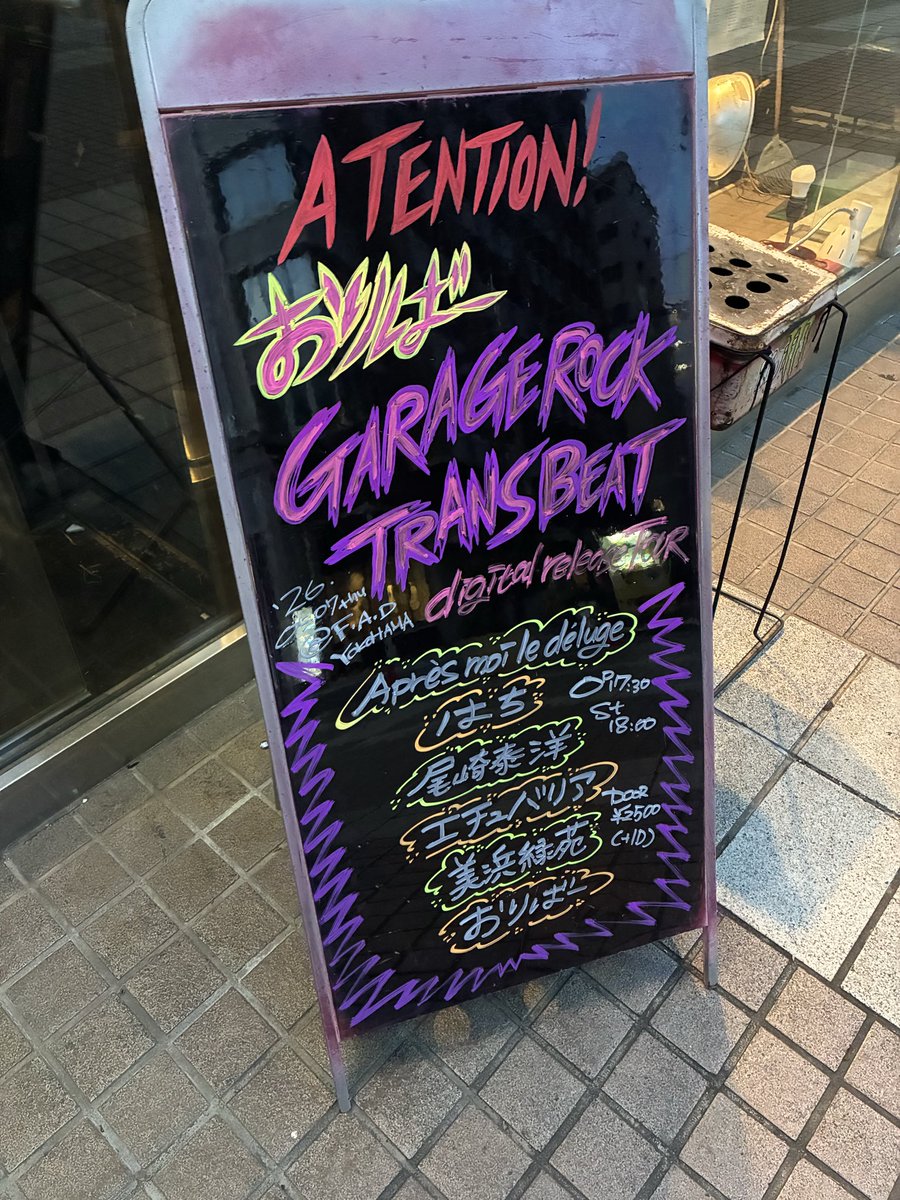 A TENTION!
おりばー
GARAGE ROCK
TRANS BEAT
digital release tour
'26.
05.07 thu
@F.A.D
YOKOHAMA
Après moi le déluge
はち
OP17:30
St
18:00
尾崎泰洋
エチュバリア
DOOR
¥2500
(+1D)
美浜緑苑
おりばー